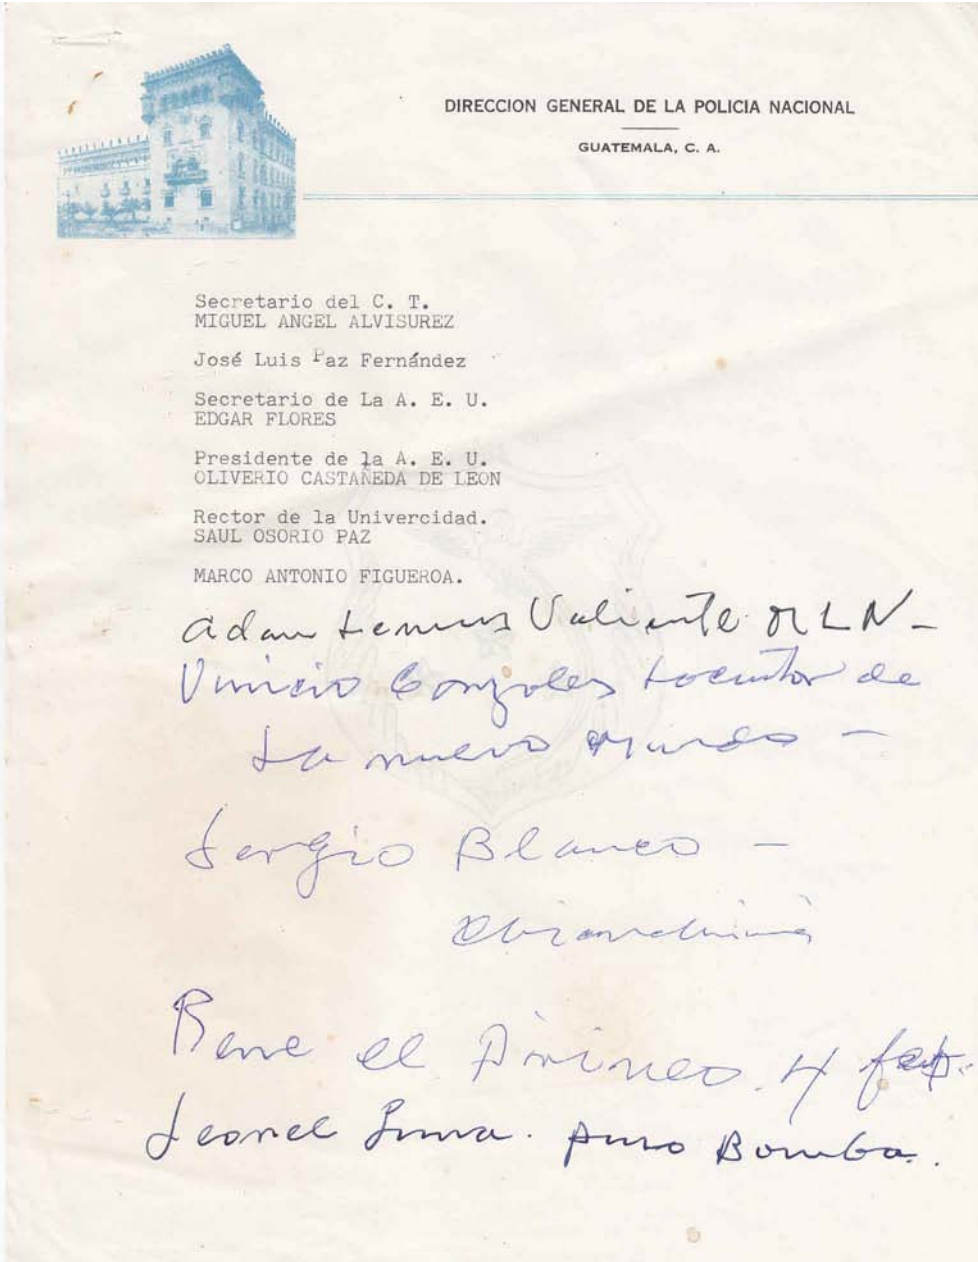 DIRECCION GENERAL DE LA POLICIA NACIONAL
GUATEMALA, C. A.
Secretario del C. T.
MIGUEL ANGEL ALVISUREZ
José Luis Paz Fernández
Secretario de La A. E. U.
EDGAR FLORES
Presidente de la A. E. U.
OLIVERIO CASTAÑEDA DE LEON
Rector de la Univercidad.
SAUL OSORIO PAZ
MARCO ANTONIO FIGUEROA.
Adan Lemus Valiente MLN -
Vinicio Gonzales Locutor de
La nuevo Mundo -
Sergio Blanco -
Rene el Pirineo. 4
Leonel Luna. Puro Bomba.